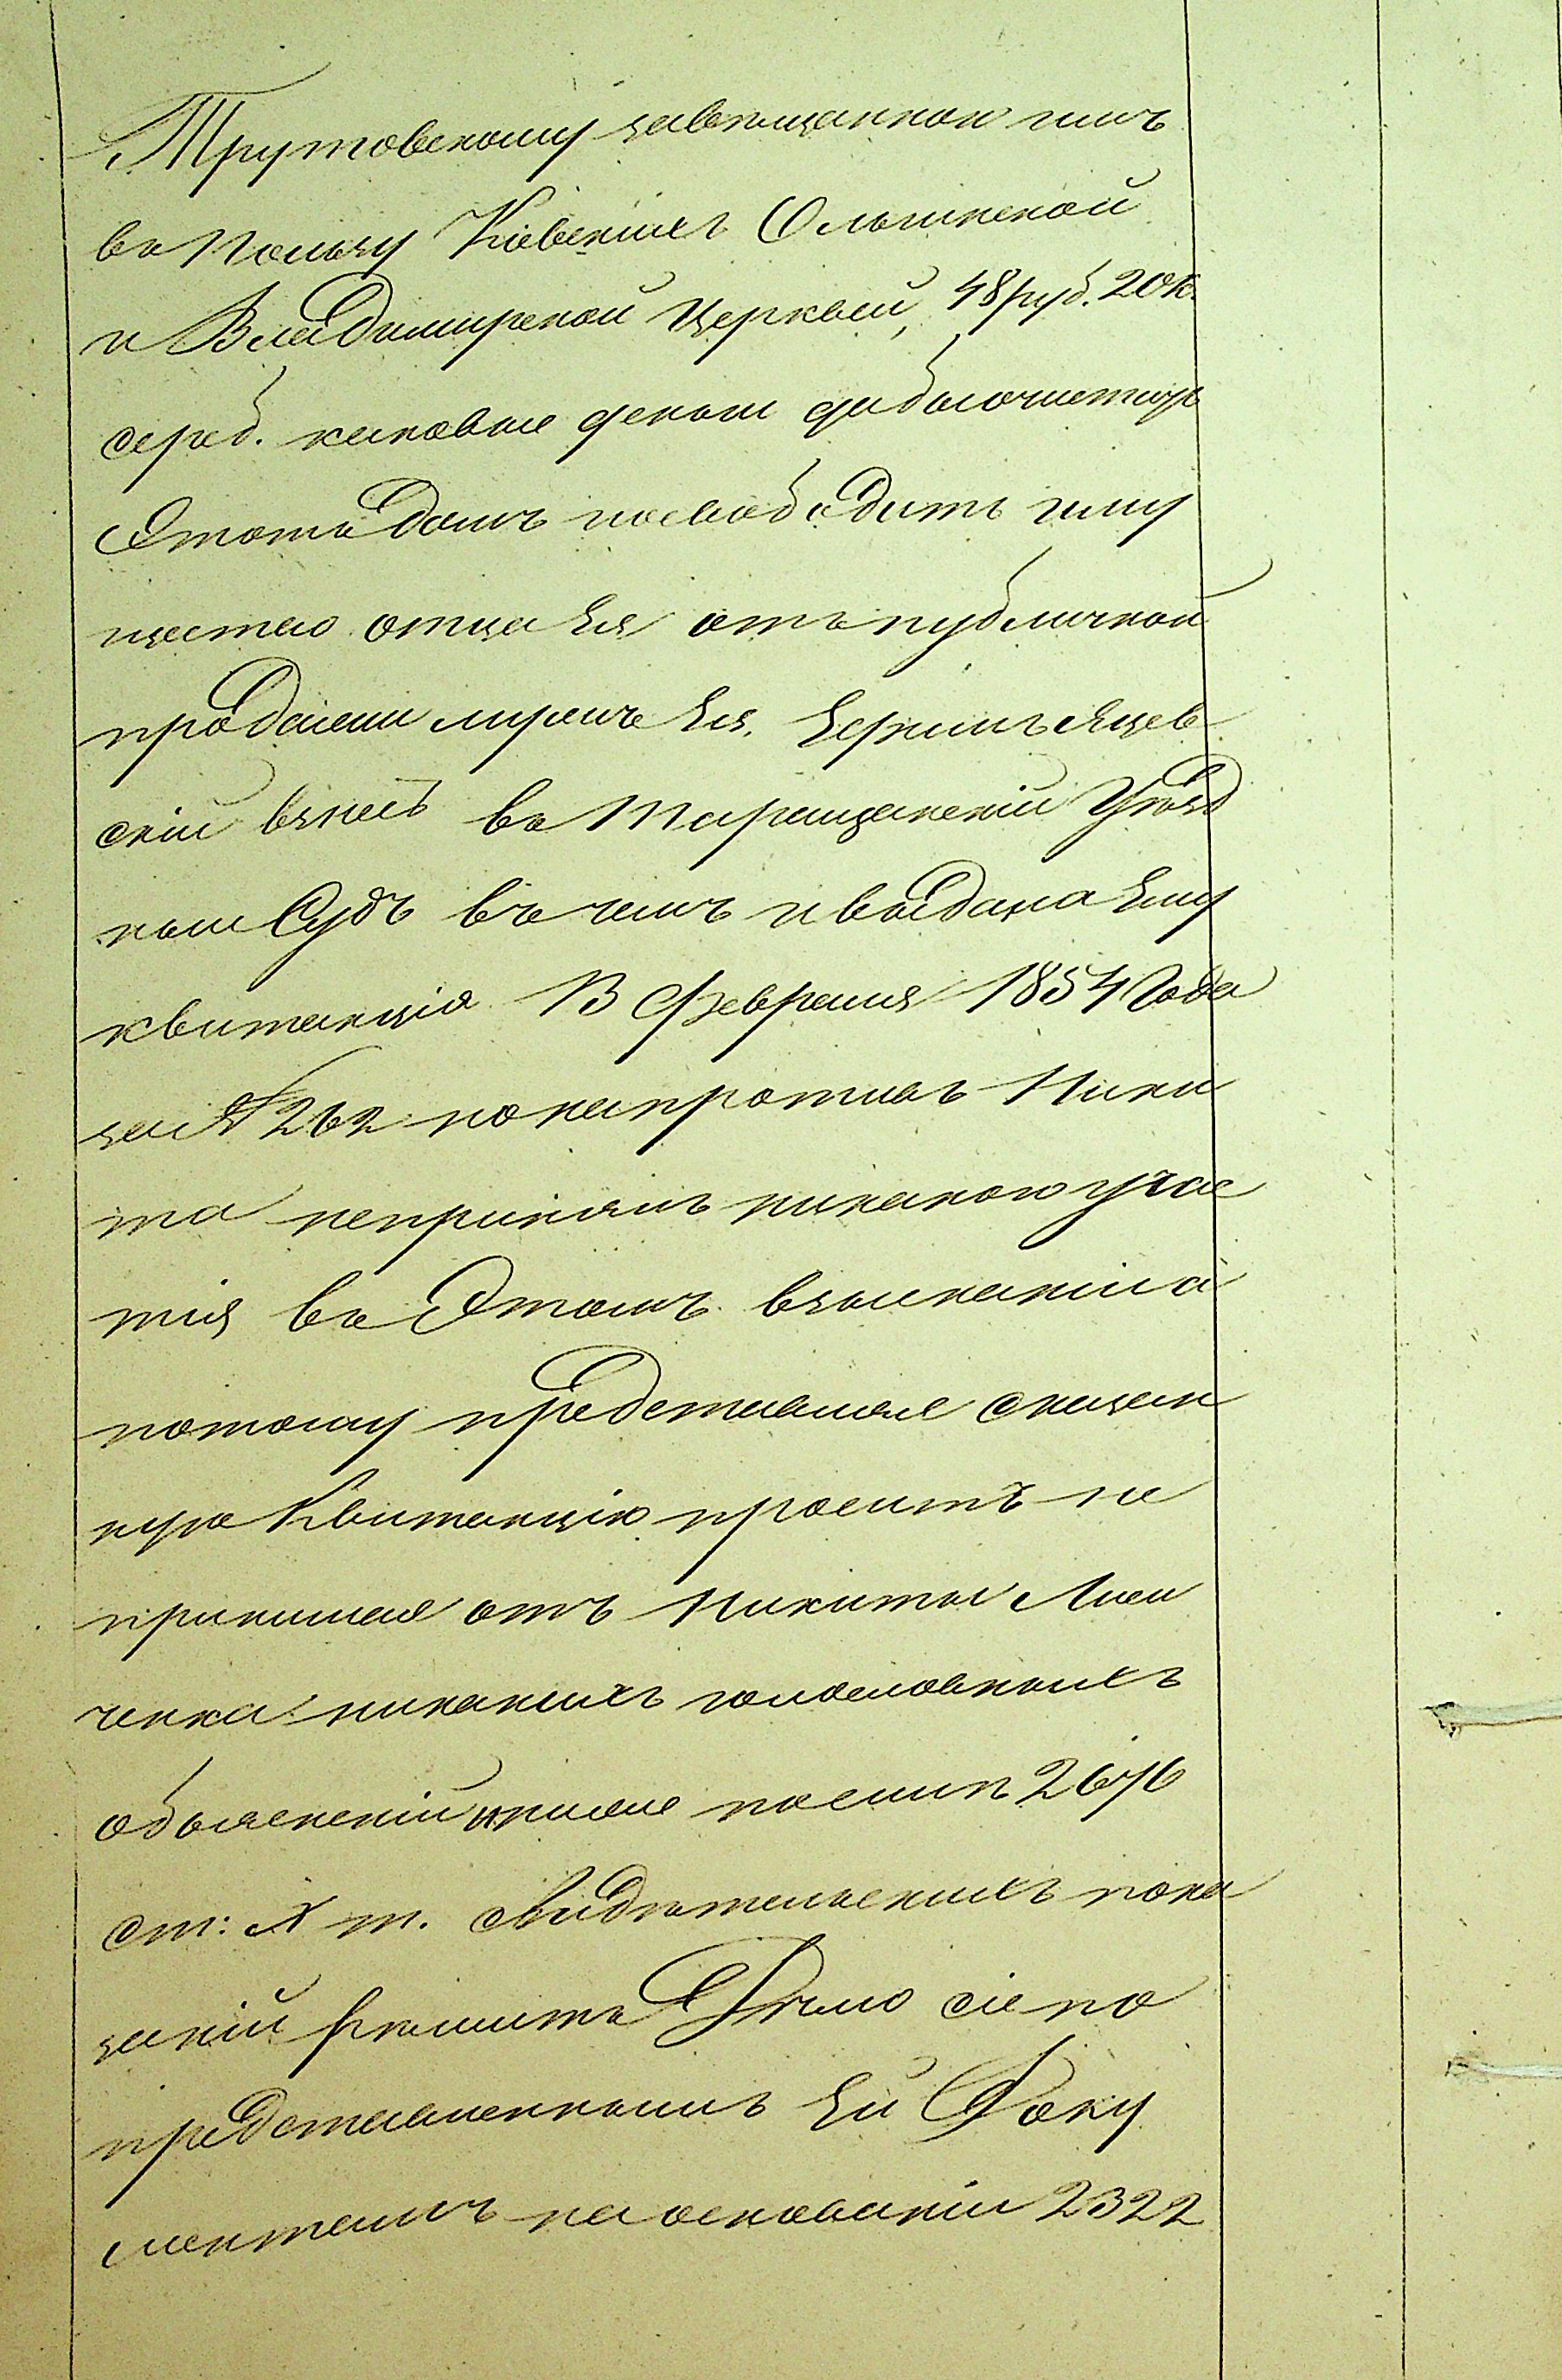 Трутовскому завѣщаннои имъ
въ пользу Кіевскихъ Ольгинской
и Владимирской Церквей, 48 руб. 20 к.
сереб. каковые деньги дабы очистить
Этотъ долгъ и освободить иму
щество отца Ея отъ публичной
продажи мужъ Ея, Еерминъ Яцев
скій взнесъ въ Таращанскій Уѣзд
ный Судъ въ чемъ и выдана Ему
квитанція 13 Февраля 1854 Года
за № 262 но напротивъ Ники
та непринялъ никакого учас
тія въ Этомъ взысканіи а
потому представляя съ подлин
ную Квитанцію проситъ не
принимая отъ Никиты Лиси
ченка никакихъ голословныхъ
объясненій ниже по силѣ 2676
ст: X т. свидѣтельскихъ пока
заній рѣшить Дѣло сіе по
представленнымъ Ей Доку
ментамъ на основаніи 2322